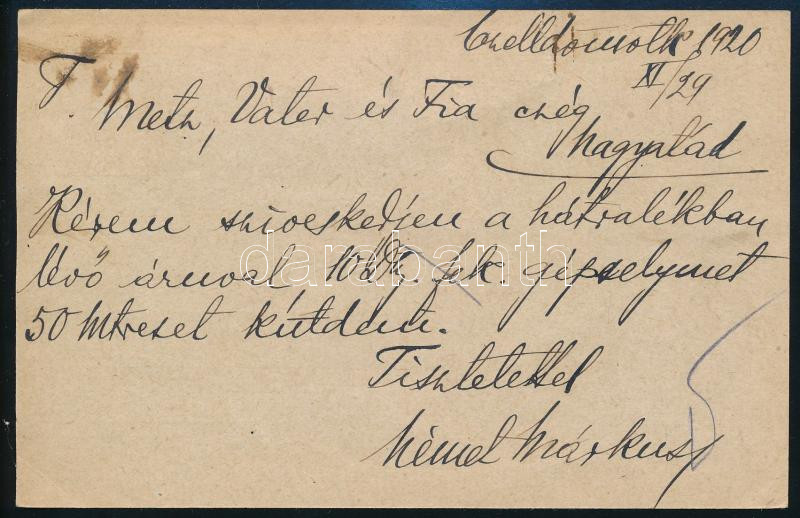 Czelldömölk 1920
XI/29
T. Meth, Vater és Fia czég
Nagyatád
Kérem sziveskedjen a hátralékban
lévő áruval 10 fek. gépselymet
50 Mtreset küldeni.
Tisztelettel
Német Márkus
darabanth